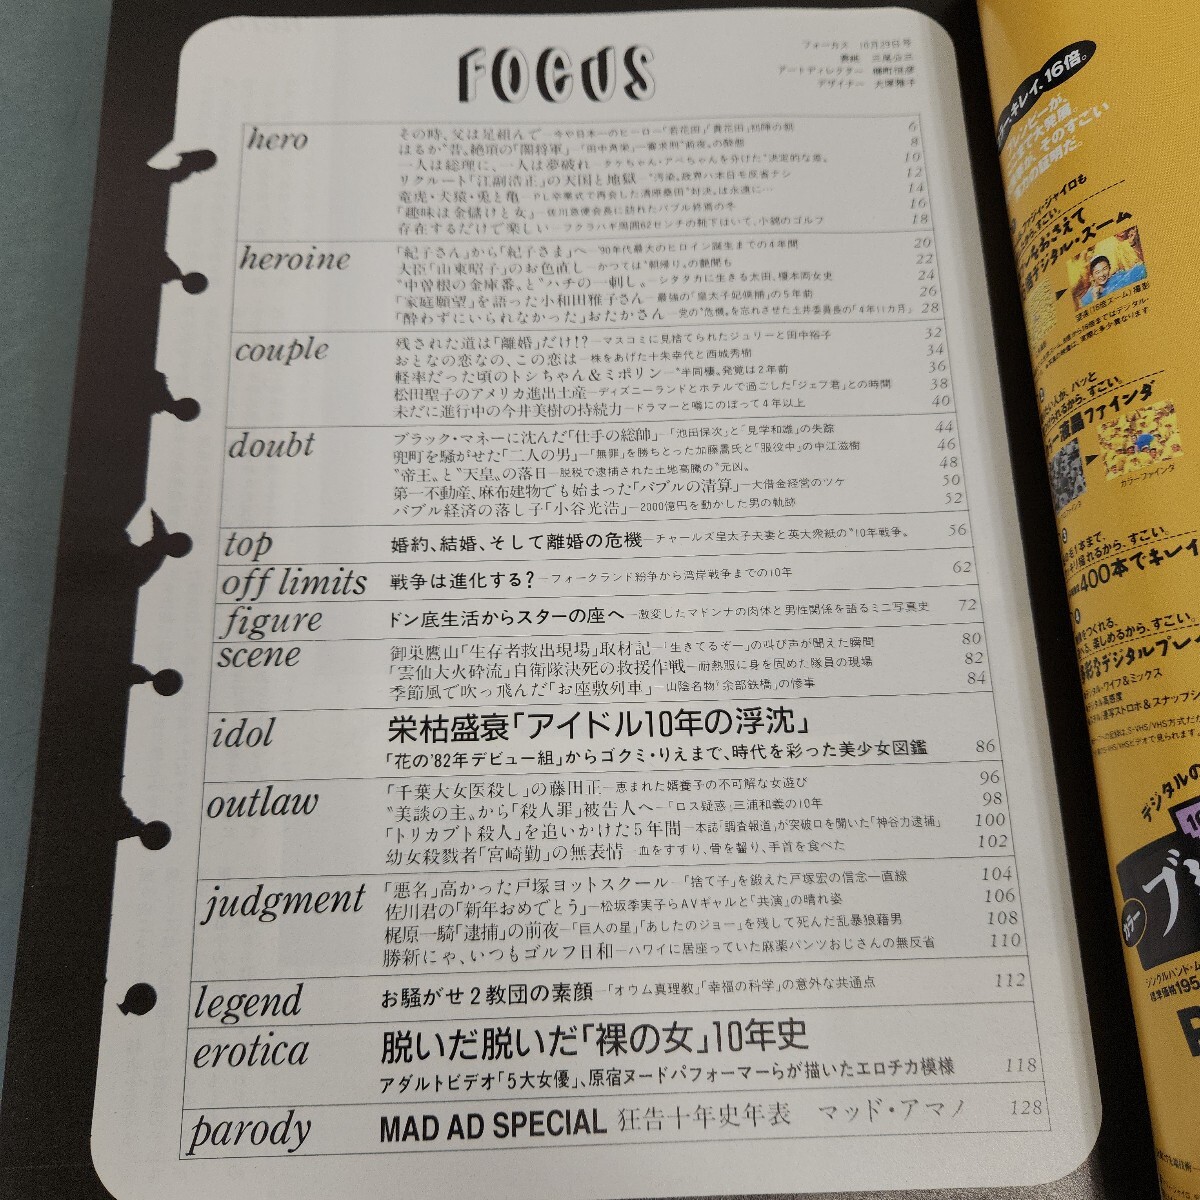 FOCUS
フォーカス 10月29日号
表紙 三尾公三
アートディレクター
デザイナー
hero
その時、父は足組んで―今や日本一のヒーロー「若花田」「貴花田」初陣の朝 6
はるか昔、絶頂の「闇将軍」―「田中角栄」一審求刑"前夜"の酔態 8
一人は総理に、一人は夢破れ―タケちゃん・アベちゃんを分けた"決定的な差" 10
リクルート「江副浩正」の天国と地獄―"汚染"政界ハ本日モ反省ナシ 12
竜虎・犬猿・兎と亀―PL卒業式で再会した清原桑田"対決"は永遠に… 14
「趣味は金儲けと女」―佐川急便会長に訪れたバブル終焉の冬 16
存在するだけで楽しい―フクラハギ周囲62センチの靴下はいて、小錦のゴルフ 18
heroine
「紀子さん」から「紀子さま」へ―'90年代最大のヒロイン誕生までの4年間 20
大臣「山東昭子」のお色直し―かつては"朝帰り"の艶聞も 22
"中曽根の金庫番"と"ハチの一刺し"―シタタカに生きる太田、榎本両女史 24
「家庭願望」を語った小和田雅子さん―最強の「皇太子妃候補」の5年前 26
「酔わずにいられなかった」おたかさん―党の"危機"を忘れさせた土井委員長の「4年11カ月」 28
couple
残された道は「離婚」だけ!?―マスコミに見捨てられたジュリーと田中裕子 32
おとなの恋なの、この恋は―株をあげた十朱幸代と西城秀樹 34
軽率だった頃のトシちゃん&ミポリン―"半同棲"発覚は2年前 36
松田聖子のアメリカ進出土産―ディズニーランドとホテルで過ごした「ジェフ君」との時間 38
未だに進行中の今井美樹の持続力―ドラマーと噂にのぼって4年以上 40
doubt
ブラック・マネーに沈んだ「仕手の総師」―「池田保次」と「見学和雄」の失踪 44
兜町を騒がせた「二人の男」―「無罪」を勝ちとった加藤暠氏と「服役中」の中江滋樹 46
"帝王"と"天皇"の落日―脱税で逮捕された土地高騰の"元凶" 48
第一不動産、麻布建物でも始まった「バブルの清算」―大借金経営のツケ 50
バブル経済の落し子「小谷光浩」―2000億円を動かした男の軌跡 52
top
婚約、結婚、そして離婚の危機―チャールズ皇太子夫妻と英大衆紙の"10年戦争" 56
off limits
戦争は進化する?―フォークランド紛争から湾岸戦争までの10年 62
figure
ドン底生活からスターの座へ―激変したマドンナの肉体と男性関係を語るミニ写真史 72
scene
御巣鷹山「生存者救出現場」取材記―「生きてるぞー」の叫び声が聞えた瞬間 80
「雲仙大火砕流」自衛隊決死の救援作戦―耐熱服に身を固めた隊員の現場 82
季節風で吹っ飛んだ「お座敷列車」―山陰名物「余部鉄橋」の惨事 84
idol
栄枯盛衰「アイドル10年の浮沈」
「花の'82年デビュー組」からゴクミ・りえまで、時代を彩った美少女図鑑 86
outlaw
「千葉大女医殺し」の藤田正―恵まれた婿養子の不可解な女遊び 96
"美談の主"から「殺人罪」被告人へ―「ロス疑惑」三浦和義の10年 98
「トリカブト殺人」を追いかけた5年間―本誌「調査報道」が突破口を開いた「神谷力逮捕」 100
幼女殺戮者「宮崎勤」の無表情―血をすすり、骨を齧り、手首を食べた 102
judgment
「悪名」高かった戸塚ヨットスクール―「捨て子」を鍛えた戸塚宏の信念一直線 104
佐川君の「新年おめでとう」―松坂季実子らAVギャルと「共演」の晴れ姿 106
梶原一騎「逮捕」の前夜―「巨人の星」「あしたのジョー」を残して死んだ乱暴狼藉男 108
勝新にゃ、いつもゴルフ日和―ハワイに居座っていた麻薬パンツおじさんの無反省 110
legend
お騒がせ2教団の素顔―「オウム真理教」「幸福の科学」の意外な共通点 112
erotica
脱いだ脱いだ「裸の女」10年史
アダルトビデオ「5大女優」、原宿ヌードパフォーマーらが描いたエロチカ模様 118
parody
MAD AD SPECIAL 狂告十年史年表 マッド・アマノ 128
キレイ、16倍。
デジタル・ズーム
液晶ファインダ
カラーファインダ
400本でキレイ
デジタルの
カラー